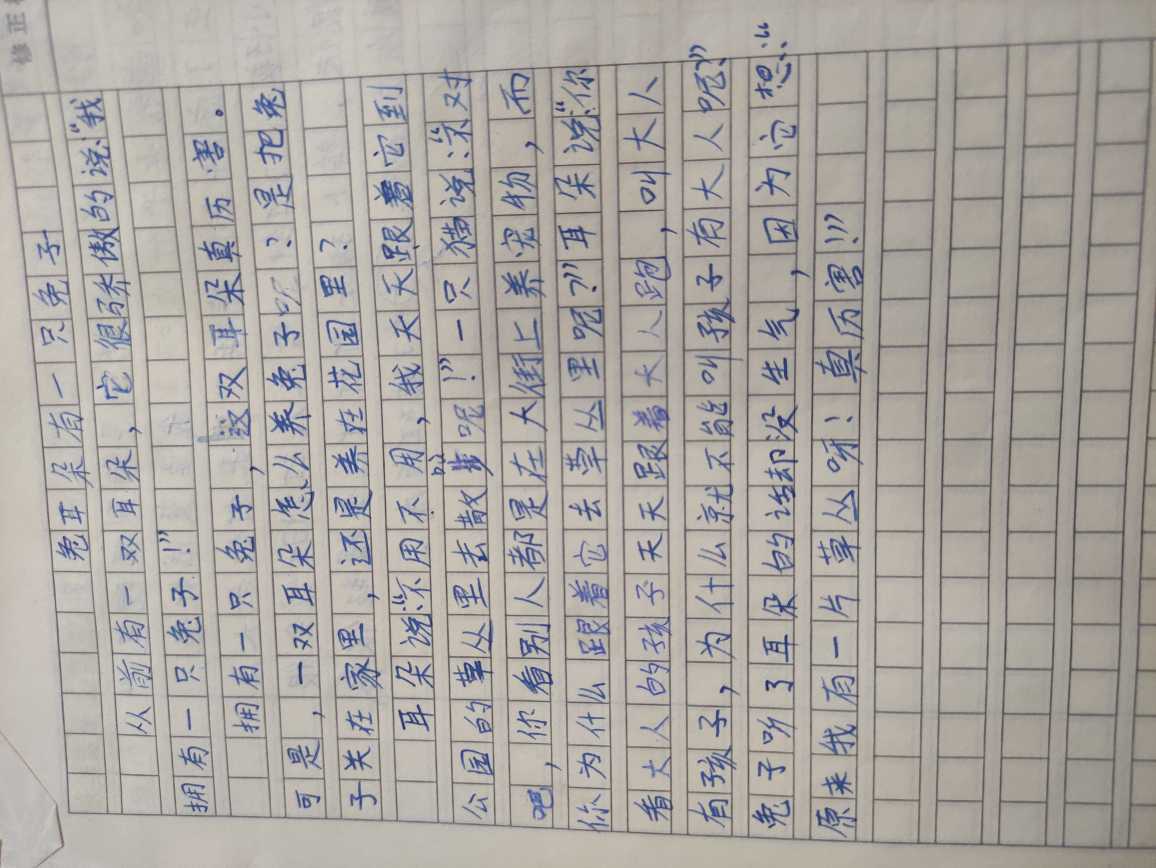 修正
兔耳朵有一只兔子
从前有一双耳朵，它很骄傲的说：“我
拥有一只兔子！”
拥有一只兔子，这双耳朵真历害。
可是，一双耳朵怎么养兔子呢？是把兔
子关在家里，还是养在花园里？
耳朵说：“不用不用，我天天跟着它到
公园的草丛里去散步呢！”一只猫说：“不对
吧，你看别人都是在大街上养宠物，而
你为什么跟着它去草丛里呢？”耳朵说：“你
看大人的孩子天天跟着大人跑，叫大人
有孩子，为什么就不能叫孩子有大人呢？”
兔子听了耳朵的话却没生气，因为它想：“
原来我有一片草丛呀！真历害！”